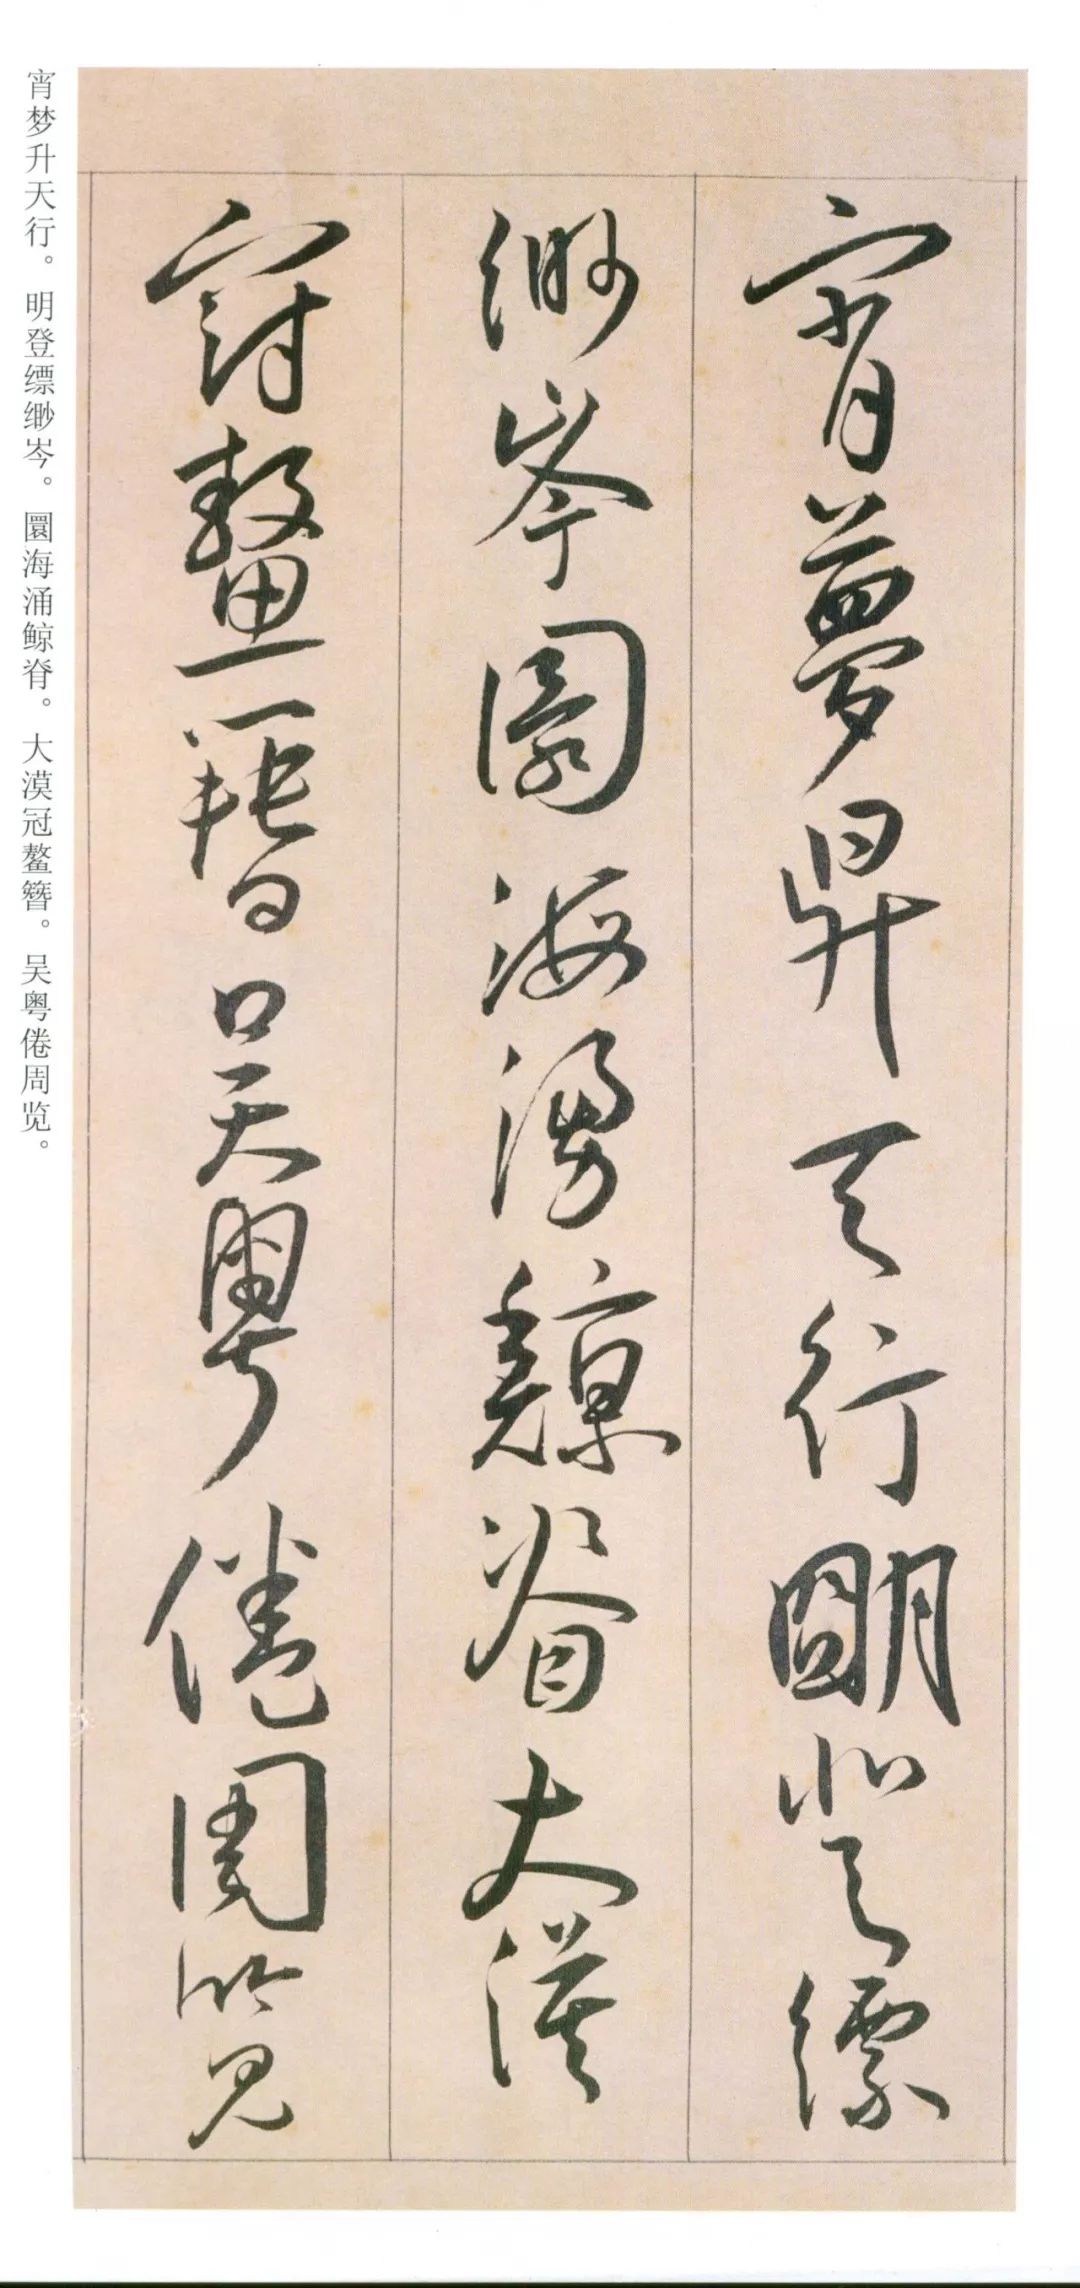 宵夢昇天行明登縹
緲岑圜海湧鯨脊大漠
冠鼇簪吳粵倦周覽
宵梦升天行。明登缥缈岑。圜海涌鲸脊。大漠冠鳌簪。吴粤倦周览。